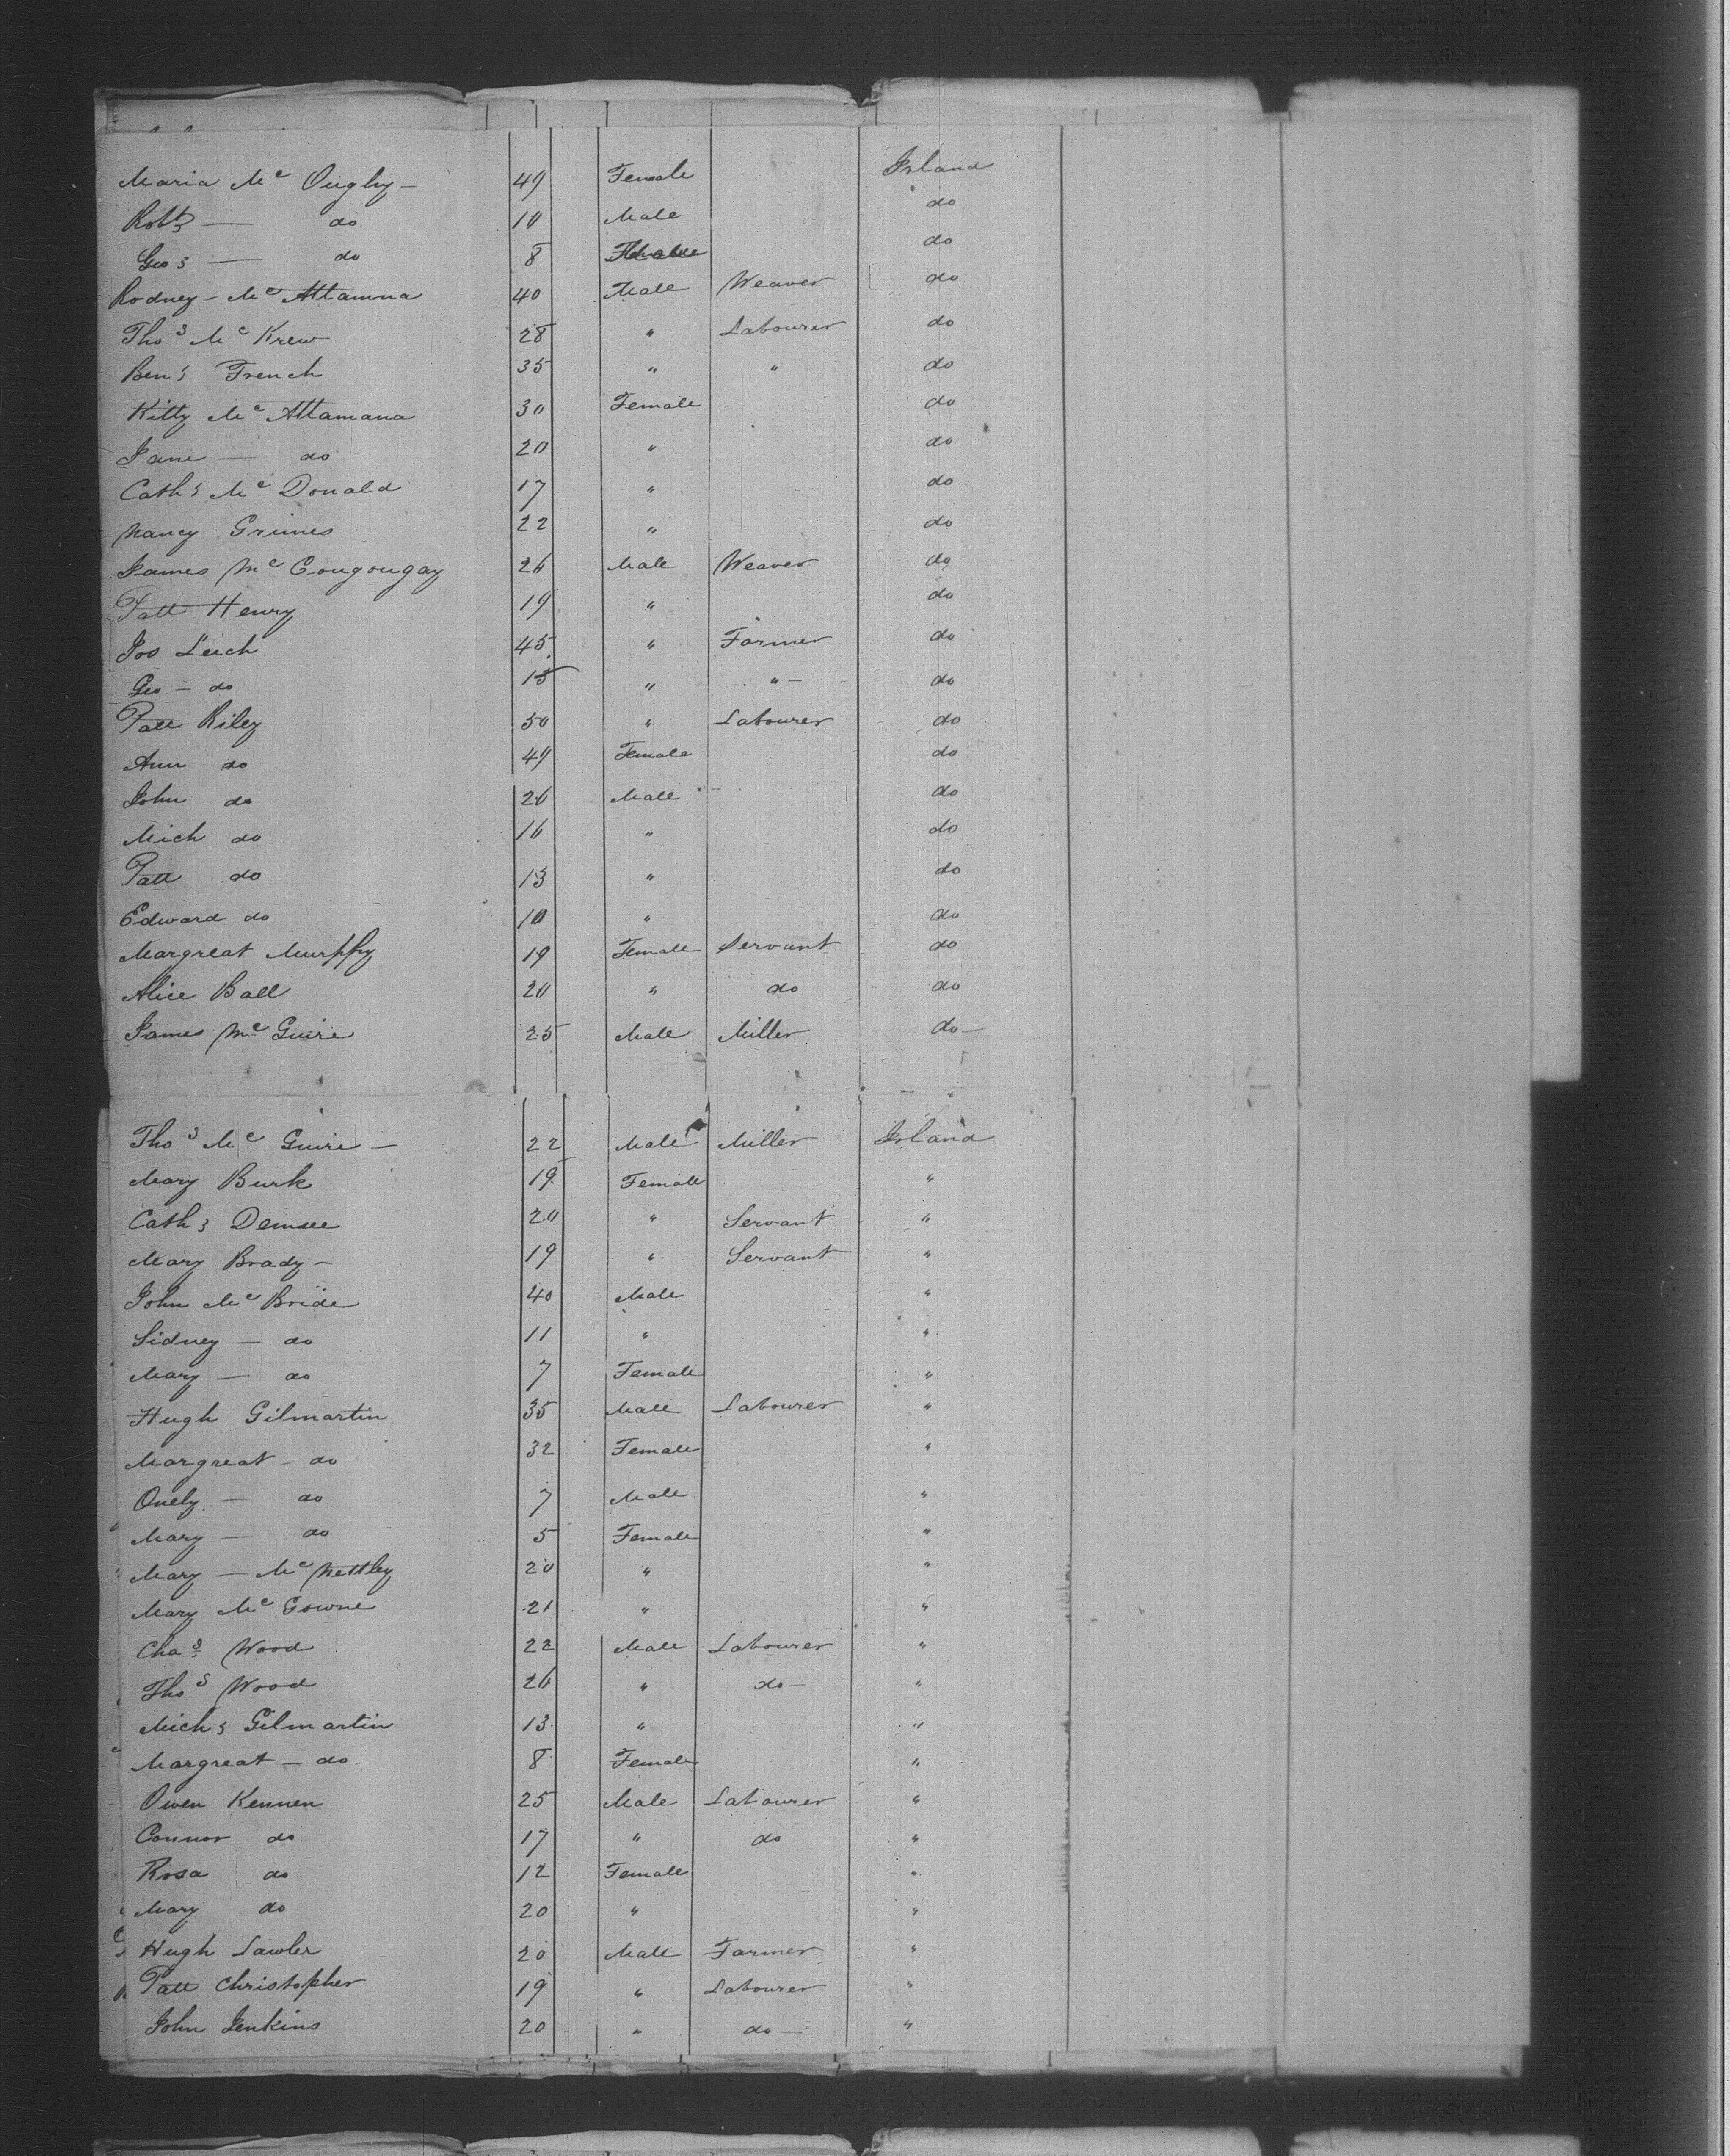 Maria Mc Oughy — 49 Female Irland
Robt — do 10 Male do
Geo — do 8 do
Rodney - Mc Attamna 40 Male Weaver do
Thos Mc Krew 28 " Labourer do
Benj French 35 " " do
Kitty Mc Attamana 30 Female do
Jane — do 20 " do
Cath Mc Donald 17 " do
Nancy Grimes 22 " do
James Mc Cougougay 26 Male Weaver do
Patt Henry 19 " do
Joo Leech 45 " Farmer do
Geo - do 15 " " — do
Patt Riley 50 " Labourer do
Ann do 49 Female do
John do 26 Male do
Mich do 16 " do
Patt do 13 " do
Edward do 10 " do
Margreat Murphy 19 Female Servant do
Alice Ball 20 " do do
James Mc Guire 25 Male Miller do —
Thos Mc Guire — 22 Male Miller Irland
Mary Burk 19 Female "
Cath Demsee 20 " Servant "
Mary Brady - 19 " Servant "
John Mc Bride 40 Male "
Sidney — do 11 " "
Mary — do 7 Female "
Hugh Gilmartin 35 Male Labourer "
Margreat - do 32 Female "
Onely — do 7 Male "
Mary — do 5 Female "
Mary — Mc Nettley 20 " "
Mary Mc Gowne 21 " "
Chas Wood 22 Male Labourer "
Thos Wood 26 " do — "
Mich Gilmartin 13 " "
Margreat — do 8 Female "
Owen Kennen 25 Male Labourer "
Connor do 17 " do "
Rosa do 12 Female "
Mary do 20 " "
Hugh Lawler 20 Male Farmer "
Patt Christopher 19 " Labourer "
John Jenkins 20 " do — "